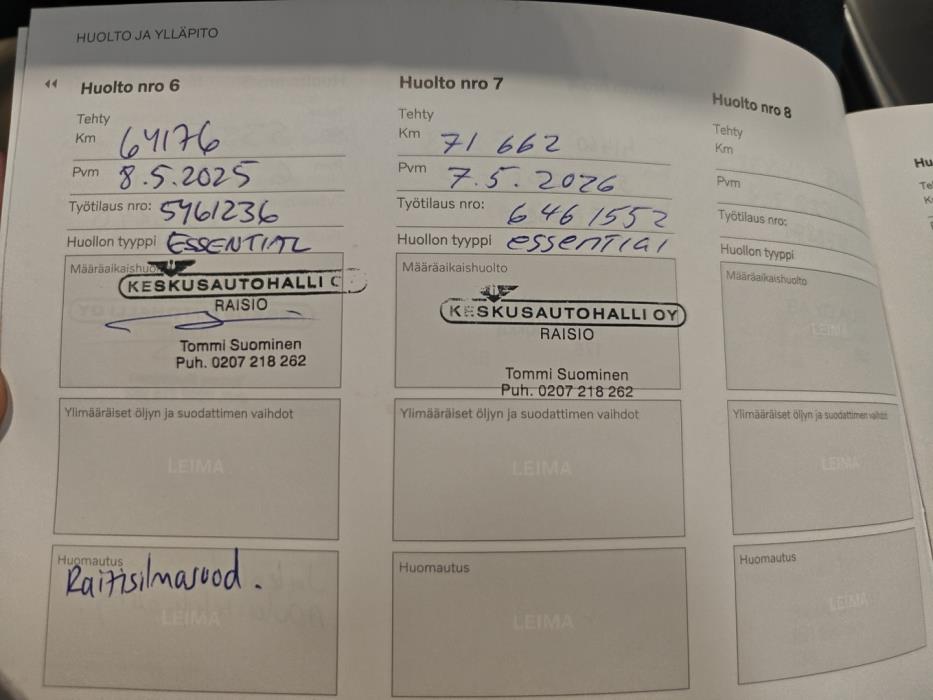 HUOLTO JA YLLÄPITO
Huolto nro 6
Tehty
Km 64176
Pvm 8.5.2025
Työtilaus nro: 5961236
Huollon tyyppi ESSENTIAL
Määräaikaishuolto
KESKUSAUTOHALLI
RAISIO
Tommi Suominen
Puh. 0207 218 262
Ylimääräiset öljyn ja suodattimen vaihdot
LEIMA
Huomautus
Raitisilmasuod.
LEIMA
Huolto nro 7
Tehty
Km 71 662
Pvm 7.5.2026
Työtilaus nro: 6461552
Huollon tyyppi essential
Määräaikaishuolto
KESKUSAUTOHALLI OY
RAISIO
Tommi Suominen
Puh. 0207 218 262
Ylimääräiset öljyn ja suodattimen vaihdot
LEIMA
Huomautus
LEIMA
Huolto nro 8
Tehty
Km
Pvm
Työtilaus nro:
Huollon tyyppi
Määräaikaishuolto
LEIMA
Ylimääräiset öljyn ja suodattimen vaihdot
LEIMA
Huomautus
LEIMA